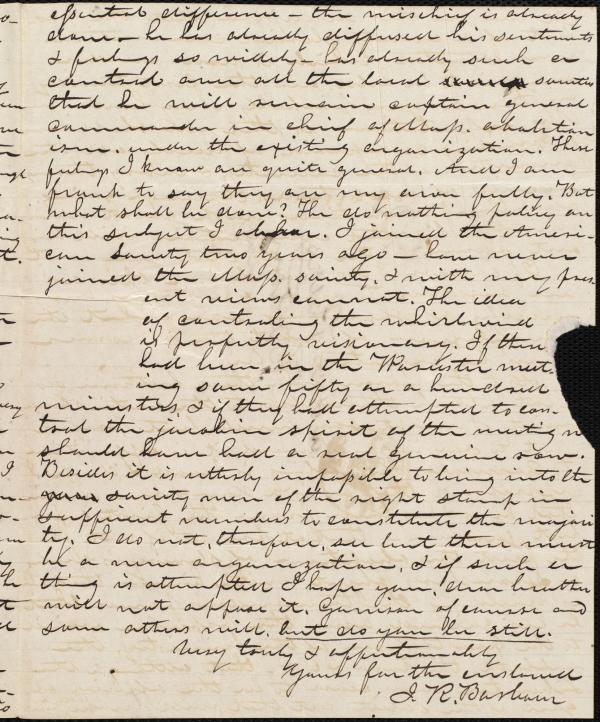 essential difference - the mischief is already
done - he has already diffused his sentiments
& feelings so widely - has already such a
control over all the local societies
that he will remain captain general
commander in chief of Mass. abolition
ism. under the existing organization. These
feelings I know are quite general. And I am
frank to say they are my own fully. But
what shall be done? The do nothing policy on
this subject I abhor. I joined the Ameri-
can Society two years ago - have never
joined the Mass. society, & with my pres-
ent views cannot. The idea
of controling the whirlwind
is perfectly visionary. If there
had been in the Worcester meet-
ing some fifty or a hundred
ministers, & if they had attempted to con-
trol the jacobin spirit of the meeting we
should have had a real genuine row.
Besides it is utterly impossible to bring into the
society men of the right stamp in
sufficient numbers to constitute the majori
ty. I do not, therefore, see but there must
be a new organization, & if such a
thing is attempted I hope you, dear brother
will not oppose it. Garrison of course and
some others will. but do you be still.
Very truly & affectionately
Yours for the enslaved
J. R. Barbour